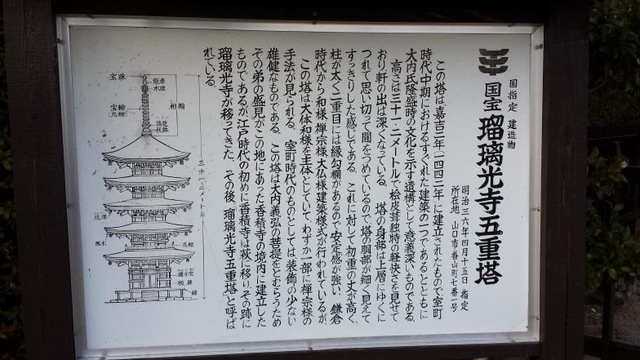 国指定 建造物
国宝 瑠璃光寺五重塔
明治三六年四月十五日 指定
所在地 山口市香山町七番一号
この塔は嘉吉二年(一四四二年)に建立されたもので室町
時代中期におけるすぐれた建築の一つであるとともに
大内氏隆盛時の文化を示す遺構として意義深いものである。
高さは三十一.二メートルで桧皮葺独特の軽快さを見せて
おり軒の出は深くなっている。塔の身部は上層にゆくに
つれて思い切って間をつめているので塔の胴部が細く見えて
すっきりした感じである。これに対して初重の丈が高く、
柱が太く二重目には縁勾欄があるので安定感が強い。鎌倉
時代から和様、禅宗様、大仏様建築様式が行われているが
この塔は大体和様を主体としていてわずか一部に禅宗様の
手法が見られる。室町時代のものとしては装飾の少ない
雄健なものである。この塔は大内義弘の菩提をとむらうため
その弟の盛見がこの地にあった香積寺の境内に建立した
ものであるが江戸時代の初めに香積寺は萩に移りその跡に
瑠璃光寺が移ってきた。その後、「瑠璃光寺五重塔」と呼ば
れている。
宝珠
相輪
宝輪